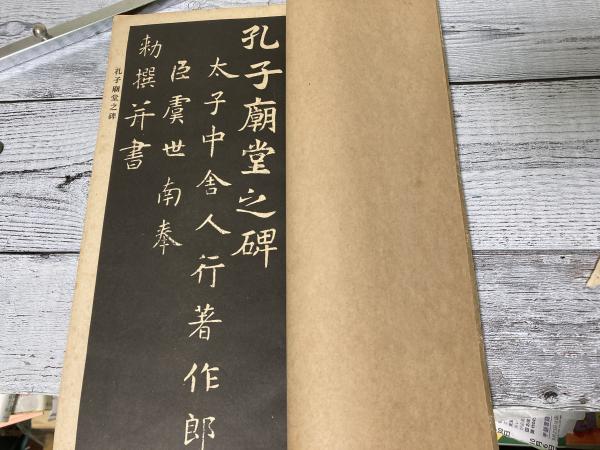 孔子廟堂之碑
太子中舎人行著作郎
臣虞世南奉
勅撰并書
孔子廟堂之碑